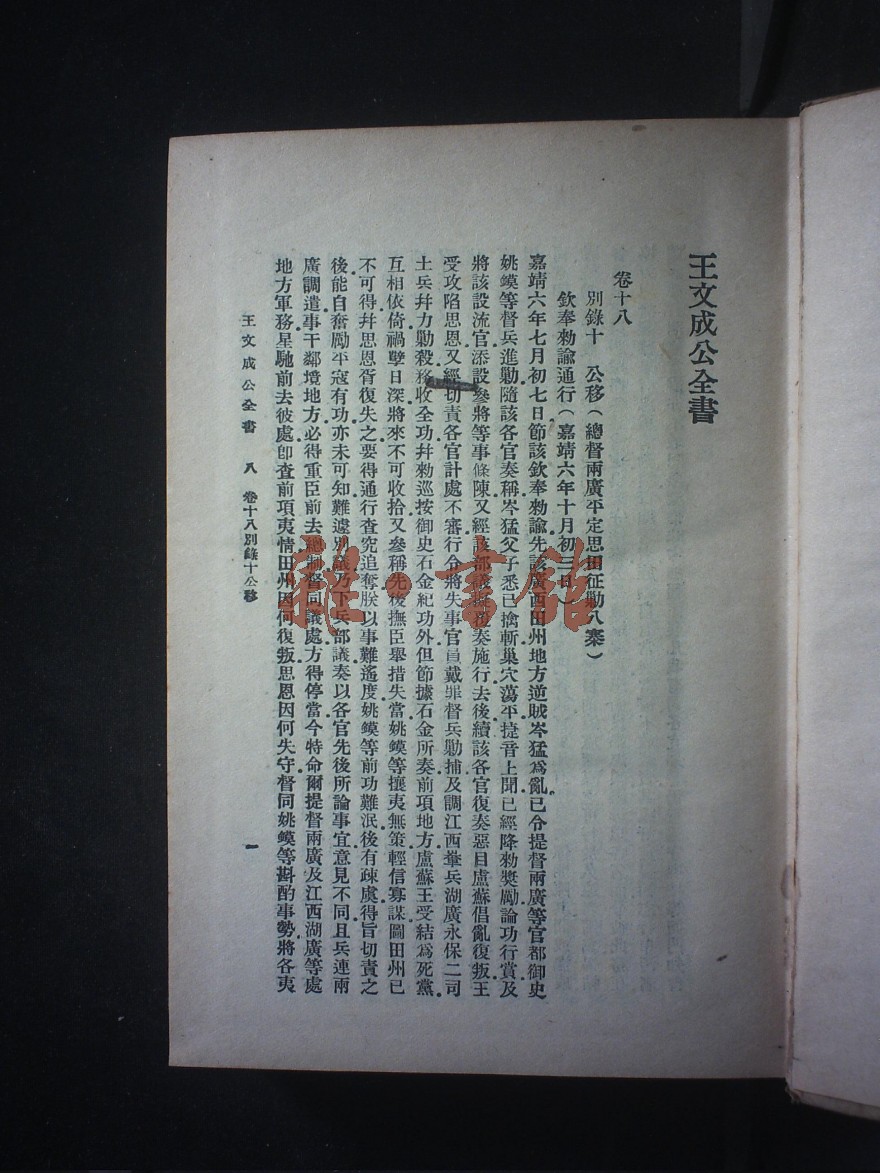 王文成公全書
卷十八
別錄十　公移(總督兩廣平定思田征勦八寨)
欽奉勅諭通行(嘉靖六年十月初三日)
嘉靖六年七月初七日節該欽奉勅諭先該廣西田州地方逆賊岑猛爲亂已令提督兩廣等官都御史
姚鏌等督兵進勦隨該各官奏稱岑猛父子悉已擒斬巢穴蕩平捷音上聞已經降勅奬勵論功行賞及
將該設流官添設參將等事條陳又經該部議擬覆奏施行去後續該各官復奏惡目盧蘇倡亂復叛王
受攻陷思恩又經切責各官計處不審行令將失事官員戴罪督兵勦捕及調江西峯兵湖廣永保二司
土兵幷力勦殺務收全功幷勅巡按御史石金紀功外但節據石金所奏前項地方盧蘇王受結爲死黨
互相依倚禍孽日深將來不可收拾又參稱先後撫臣舉措失當姚鏌等攘夷無策輕信寡謀圖田州已
不可得幷思恩胥復失之要得通行查究追奪朕以事難遙度姚鏌等前功難泯後有疎虞得旨切責之
後能自奮勵平寇有功亦未可知難遽別議乃下兵部議奏以各官先後所論事宜意見不同且兵連兩
廣調遣事干鄰境地方必得重臣前去總制督同議處方得停當今特命爾提督兩廣及江西湖廣等處
地方軍務星馳前去彼處卽查前項夷情田州因何復叛思恩因何失守督同姚鏌等斟酌事勢將各夷
王文成公全書　八　卷十八別錄十公移　一
雜·書館